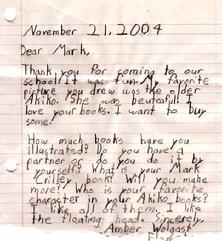 November 21, 2004
Dear Mark,
Thank you for coming to our
school! It was fun. My favorite
picture you drew was the older
Akiko. She was beuteful! I
love your books. I want to buy
some!
How much books have you
illustrated? Do you have a
partner or do you do it by
yourself? What is your Mark
Crilley book? Will you make
more? Who is your favorite
character in your Akiko books?
I like all of them. I like
the floating head. Sincerely,
Amber Wolgast